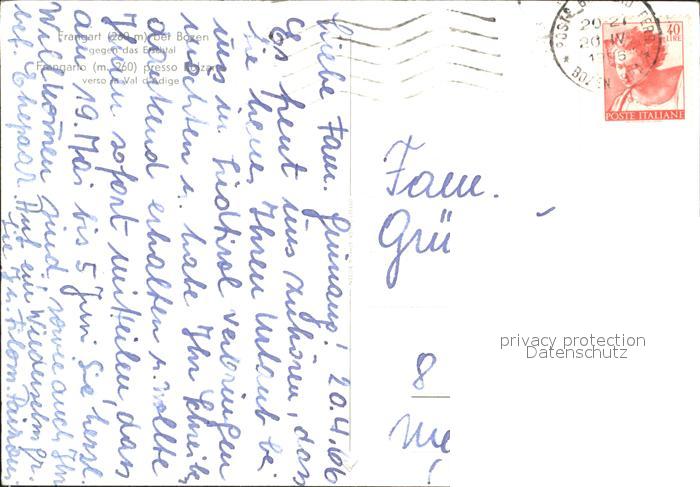 Frangart (260 m) bei Bozen
gegen das Etschtal
Frangarto (m. 260) presso Bolzano
verso la Val d'Adige
Liebe Fam. 20.4.66
Es freut uns zu hören, das
Sie heuer Ihren Urlaub bei
uns in Südtirol verbringen
möchten u. habe Ihr Schreiben
dankend erhalten u. wollte
Ihnen sofort mitteilen, das
am 19. Mai bis 5 Juni Sie herzl.
Willkomen sind sowie auch Ihr
bek. Ehepaar. Auf ein Wiedersehn gr.
Sie
Fam.
Grü
8
Me
POSTE ITALIANE
40
LIRE
20-21
20 IV
BOZEN
privacy protection
Datenschutz